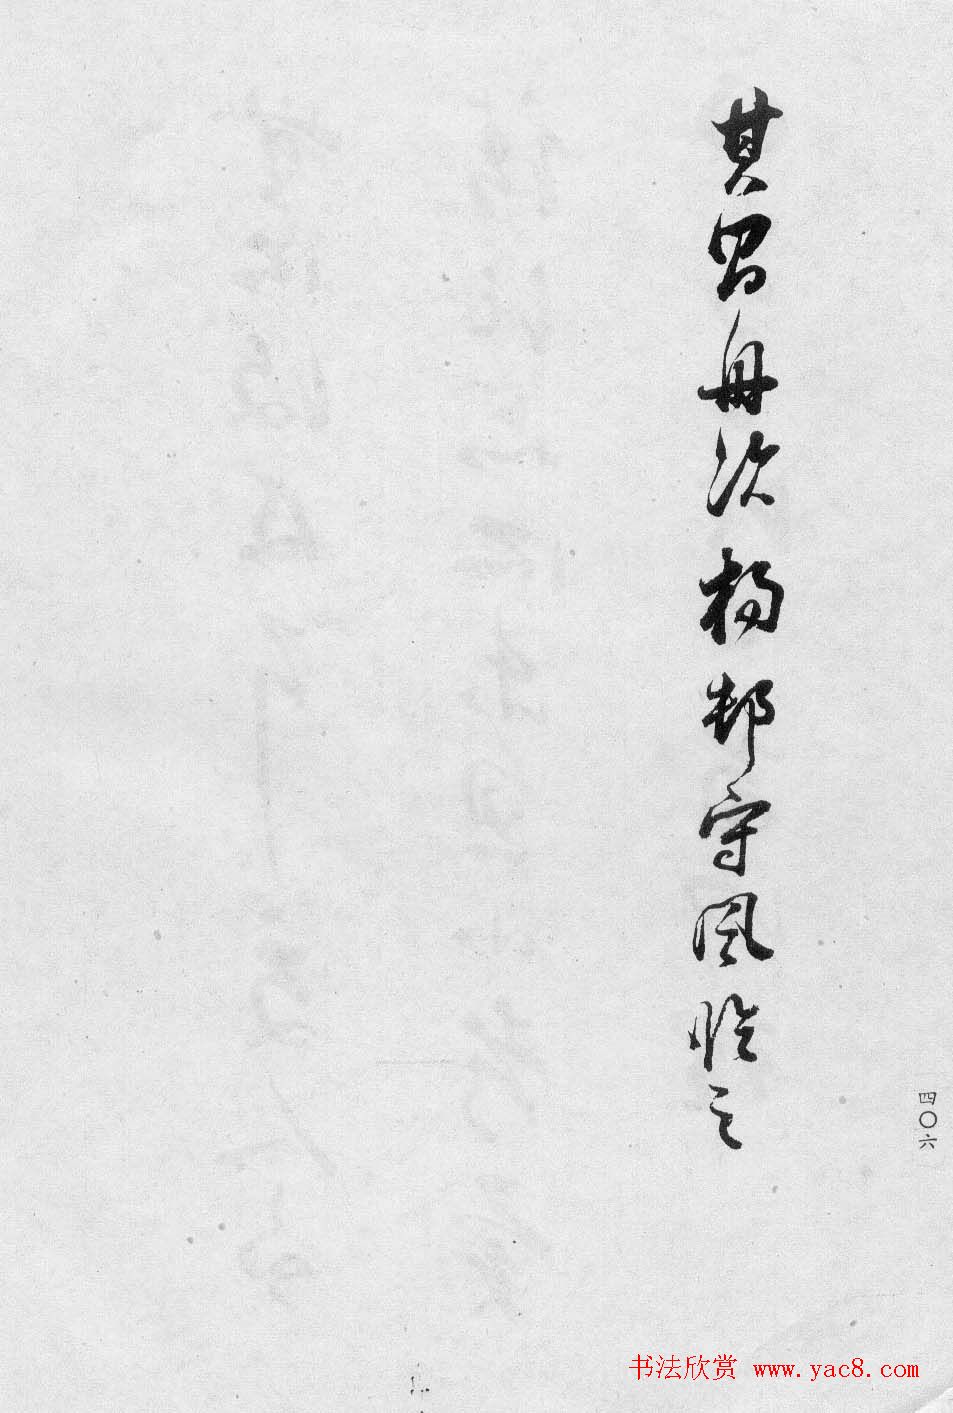 其昌舟次楊邨守風臨之
四〇六
书法欣赏 www.yac8.com